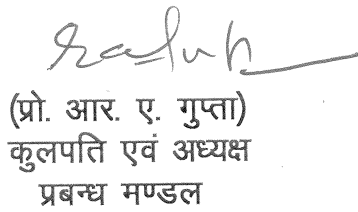 (प्रो. आर. ए. गुप्ता)
कुलपति एवं अध्यक्ष
प्रबन्ध मण्डल